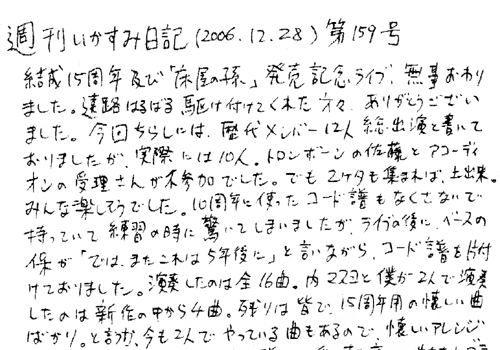 週刊いかすみ日記(2006.12.28)第159号
結成15周年及び「床屋の孫」発売記念ライブ、無事おわり
ました。遠路はるばる駆け付けてくれた方々、ありがとうござい
ました。今回ちらしには、歴代メンバー12人総出演と書いて
おりましたが、実際には10人。トロンボーンの佐藤とアコーディ
オンの受理さんが不参加でした。でも2ケタも集まれば、上出来。
みんな楽しそうでした。10周年に使ったコード譜もなくさないで
持っていて練習の時に驚いてしまいましたが、ライブの後に、ベースの
保が「では、またこれは5年後に」と言いながら、コード譜を片付
けておりました。演奏したのは全16曲。内マスコと僕が2人で演奏
したのは新作の中から4曲。残りは皆で、15周年用の懐しい曲
ばかり。と言うか、今も2人でやっている曲もあるので、懐しいアレンジ